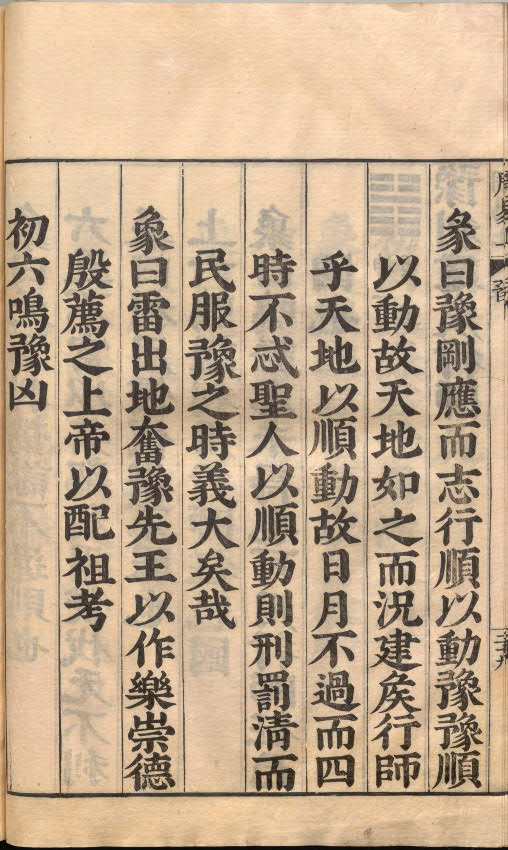 彖曰豫剛應而志行順以動豫豫順
以動故天地如之而況建矦行師
乎天地以順動故日月不過而四
時不忒聖人以順動則刑罰淸而
民服豫之時義大矣哉
象曰雷出地奮豫先王以作樂崇德
殷薦之上帝以配祖考
初六鳴豫凶